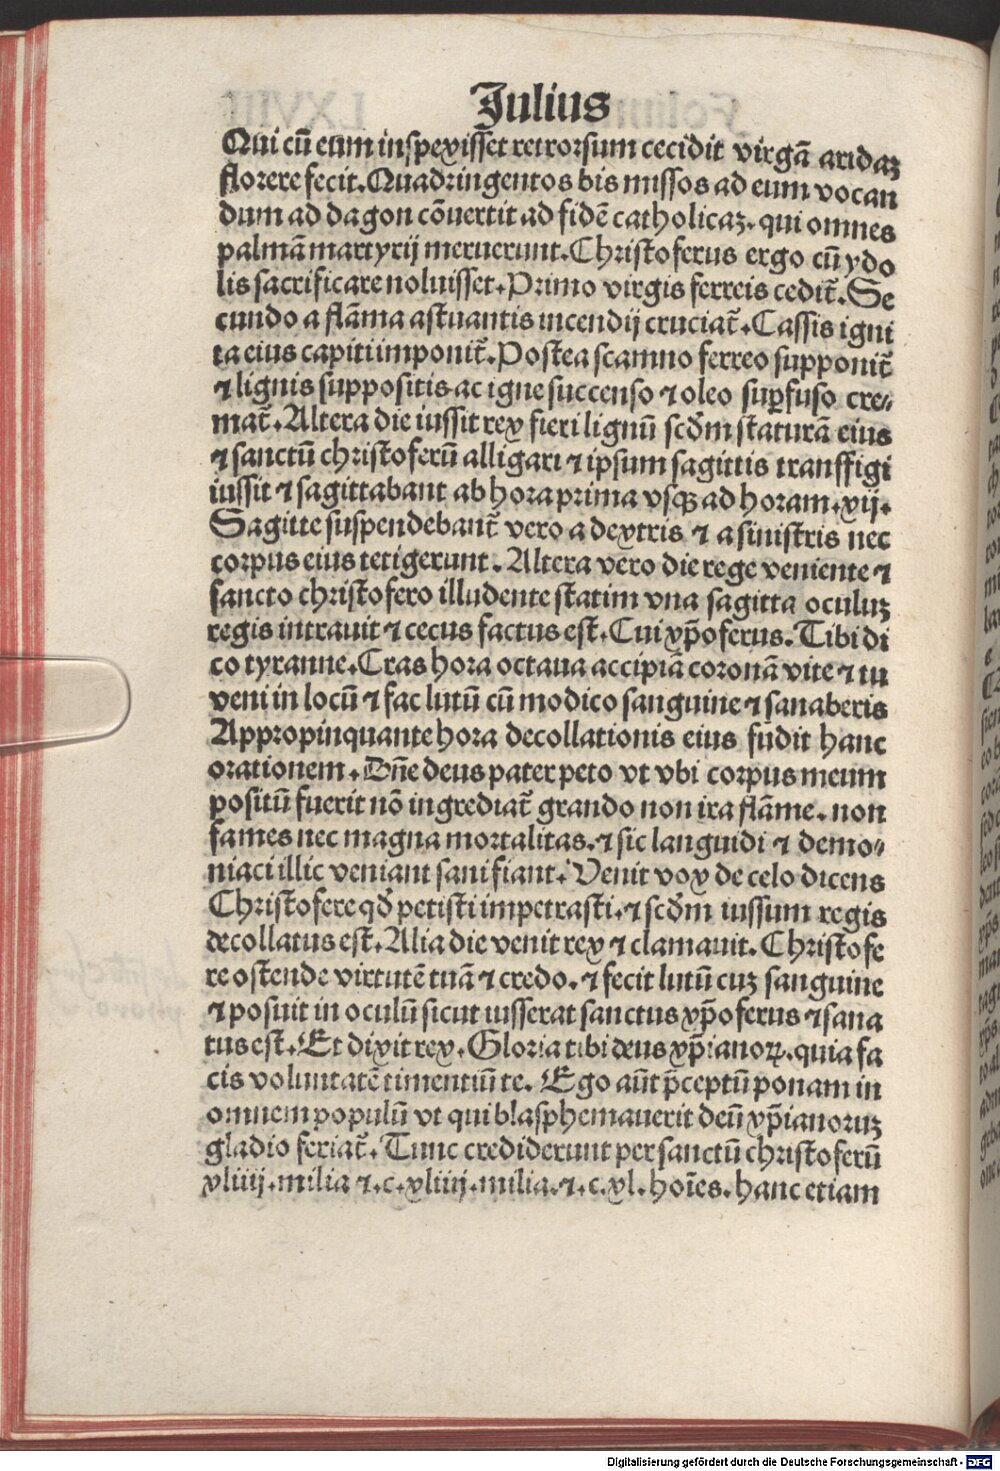 Julius
Qui cū eum inspexisset retrorsum cecidit virgā aridaʒ
florere fecit. Quadringentos bis missos ad eum vocan
dum ad dagon cōuertit ad fidē catholicaʒ. qui omnes
palmā martyrij meruerunt. Christoferus ergo cū ydo
lis sacrificare noluisset. Primo virgis ferreis cedit̄. Se
cundo a flāma astuantis incendij cruciat̄. Cassis igni
ta eius capiti imponit̄. Postea scamno ferreo supponit̄
⁊ lignis suppositis ac igne succenso ⁊ oleo suꝑfuso cre⸗
mat̄. Altera die iussit rex fieri lignū scd̄m staturā eius
⁊ sanctū christoferū alligari ⁊ ipsum sagittis transffigi
iussit ⁊ sagittabant ab hora prima vsqꝫ ad horam. xij.
Sagitte suspendebant̄ vero a dextris ⁊ a sinistris nec
corpus eius tetigerunt. Altera vero die rege veniente ⁊
sancto christofero illudente statim vna sagitta oculuʒ
regis intrauit ⁊ cecus factus est. Cui xp̄oferus. Tibi di
co tyranne. Cras hora octaua accipiā coronā vite ⁊ tu
veni in locū ⁊ fac lutū cū modico sanguine ⁊ sanaberis
Appropinquante hora decollationis eius fudit hanc
orationem. Dn̄e deus pater peto vt vbi corpus meum
positū fuerit nō ingrediat̄ grando non ira flāme. non
fames nec magna mortalitas. ⁊ sic languidi ⁊ demo⸗
niaci illic veniant sani fiant. Venit vox de celo dicens
Christofere qd̄ petisti impetrasti. ⁊ scd̄m iussum regis
decollatus est. Alia die venit rex ⁊ clamauit. Christofe
re ostende virtutē tuā ⁊ credo. ⁊ fecit lutū cuʒ sanguine
⁊ posuit in oculū sicut iusserat sanctus xp̄oferus ⁊ sana
tus est. Et dixit rex. Gloria tibi deus xp̄ianoꝝ. quia fa
cis voluntatē timentiū te. Ego aūt p̄ceptū ponam in
omnem populū vt qui blasphemauerit deū xp̄ianoruʒ
gladio feriat̄. Tunc crediderunt per sanctū christoferū
xliiij. milia ⁊. c. xliiij. milia. ⁊. c. xl. hoīes. hanc etiam
Digitalisierung gefördert durch die Deutsche Forschungsgemeinschaft - DFG